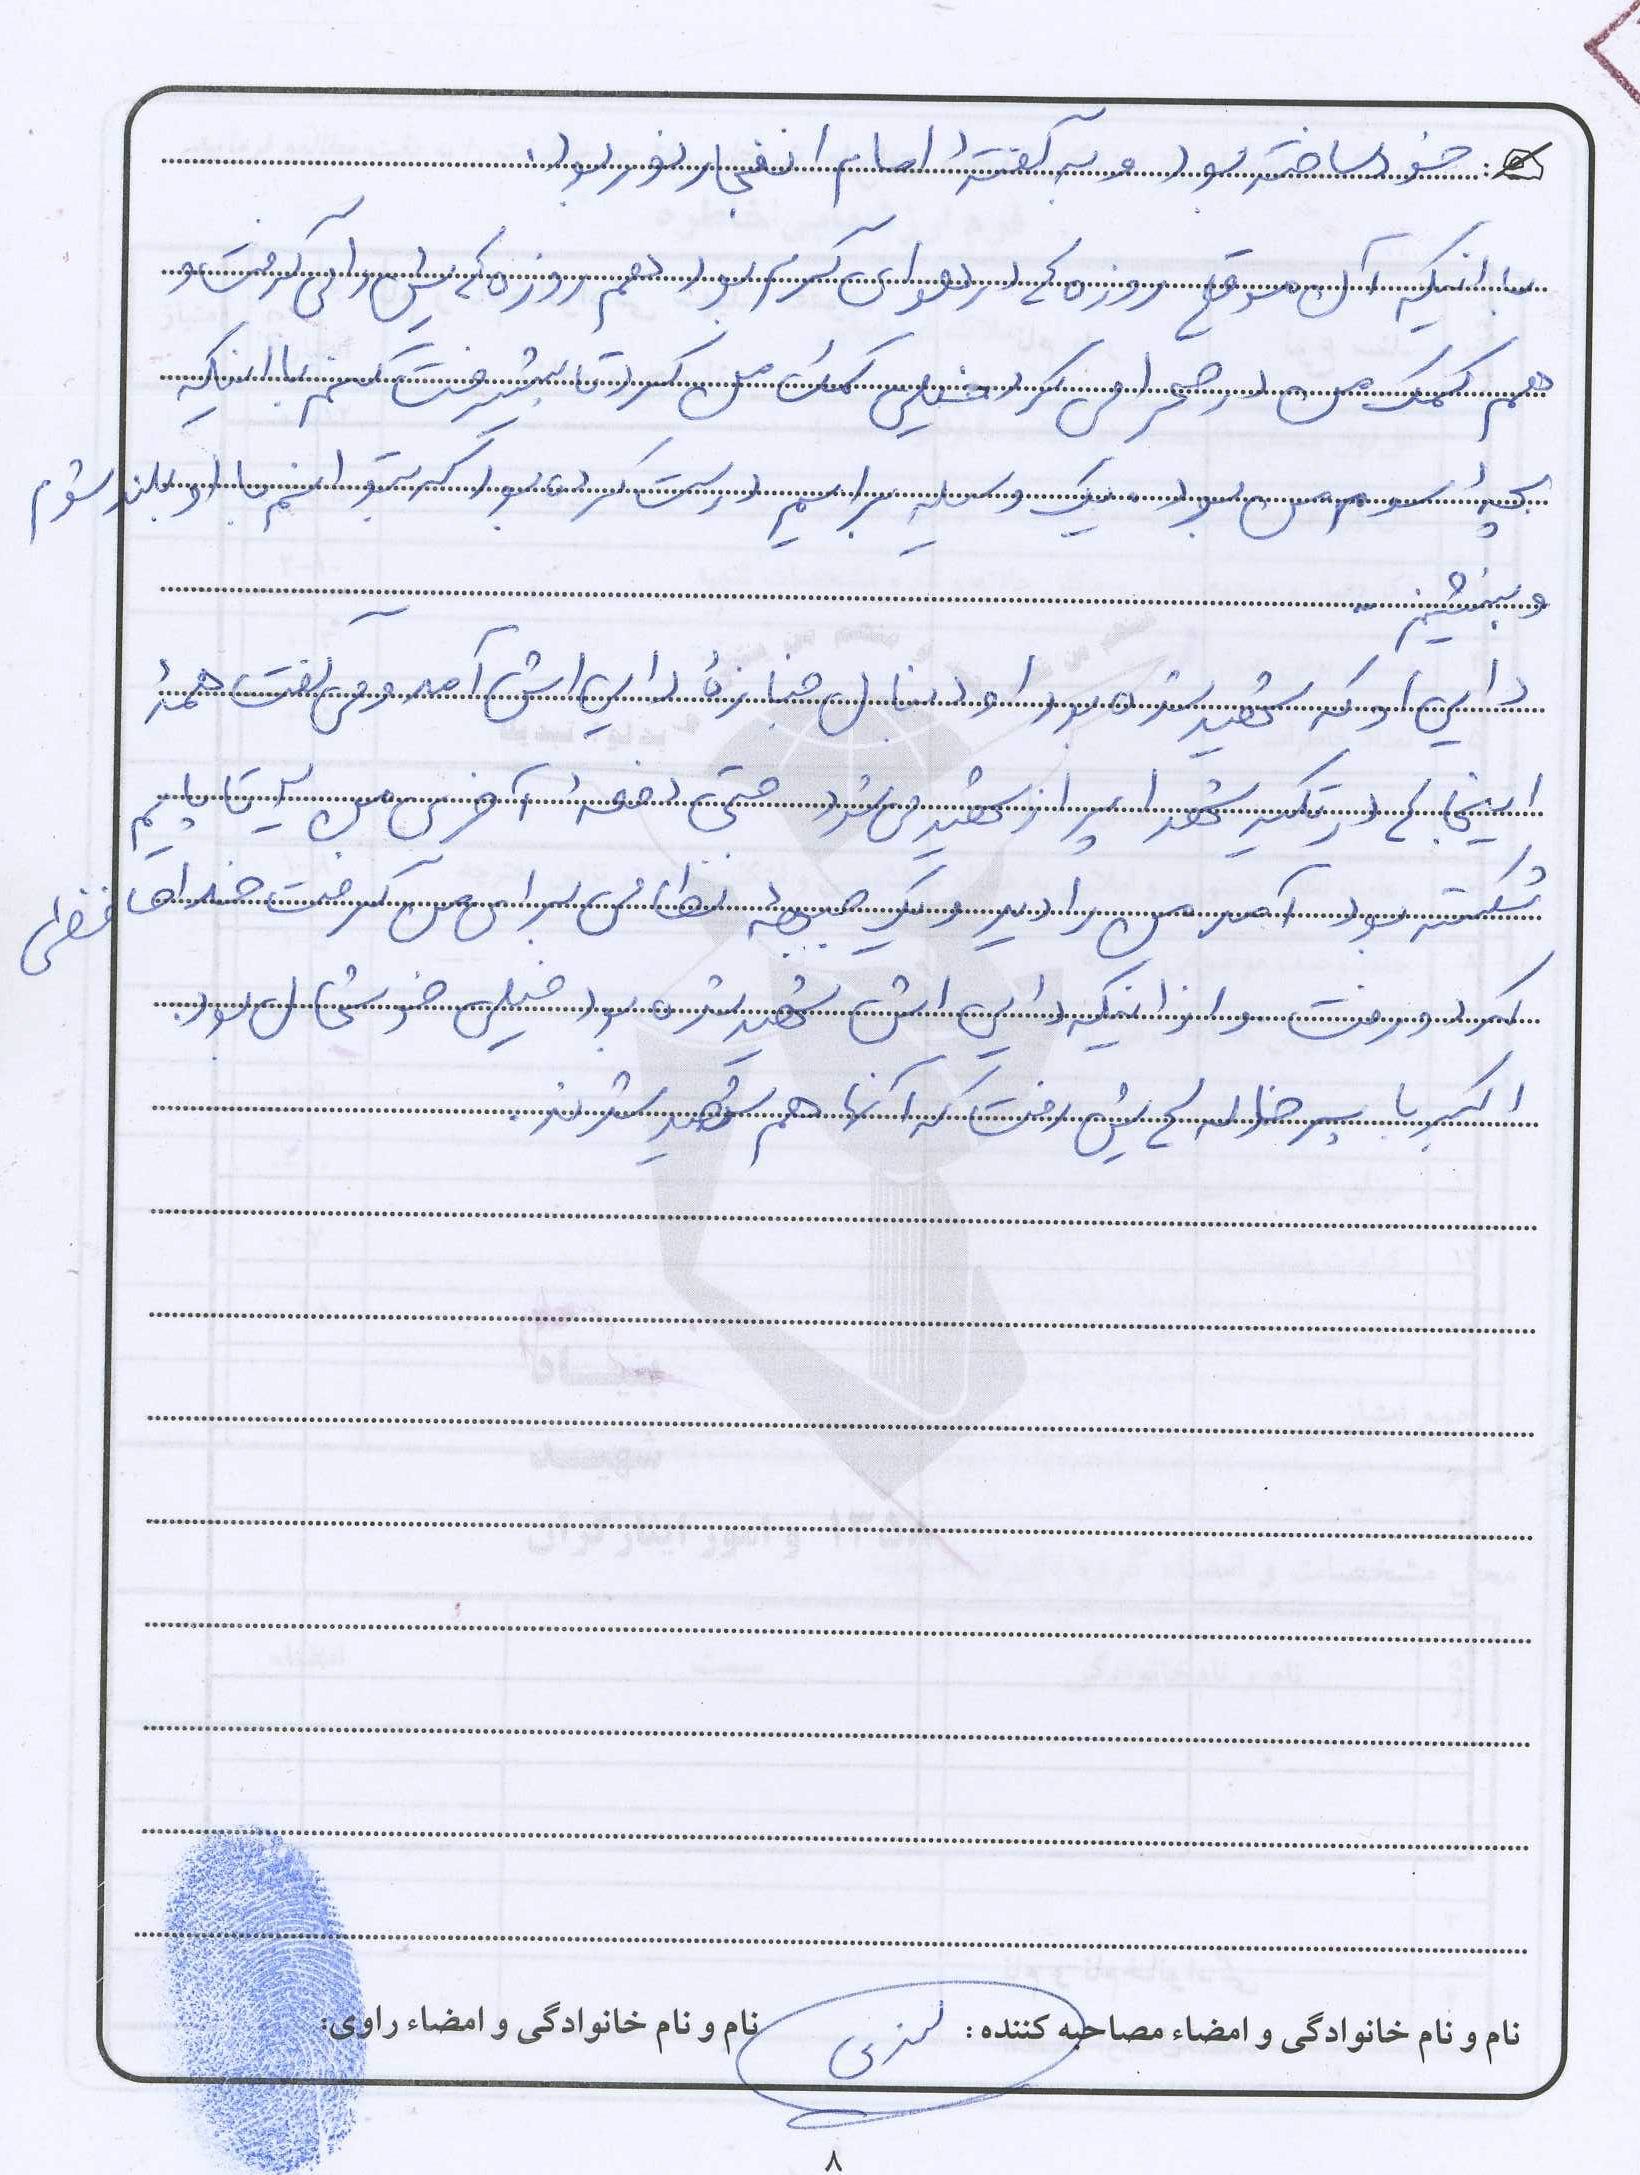 خود ساخته بود و به گفتهٔ امام انفجار نور بود.
با اینکه آن موقع روزه ها در هوای گرم بود هم روزه هایش را می گرفت و
هم کمک من در صحرا می کرد خیلی کمک من کرد تا پیشرفت کنم با اینکه
بچهٔ سوم من بود. یک وسیله برایم درست کرده بود که بتوانم با او بلند شوم
و بنشینم.
دایی او که شهید شده بود او دنبال جنازهٔ دایی اش آمد و می گفت همهٔ
اینجا ها در تکیه شهدا پر از شهید می شود حتی دفعهٔ آخر من تا پایم
شکسته بود آمد من را دید و یک جبههٔ نظامی برای من گرفت خداحافظی
کرد و رفت و از اینکه دایی اش شهید شده بود خیلی خوشحال بود.
اکبر با پسر خاله هایش رفت که آنها هم شهید شدند.
نام و نام خانوادگی و امضاء مصاحبه کننده:
نام و نام خانوادگی و امضاء راوی:
۸